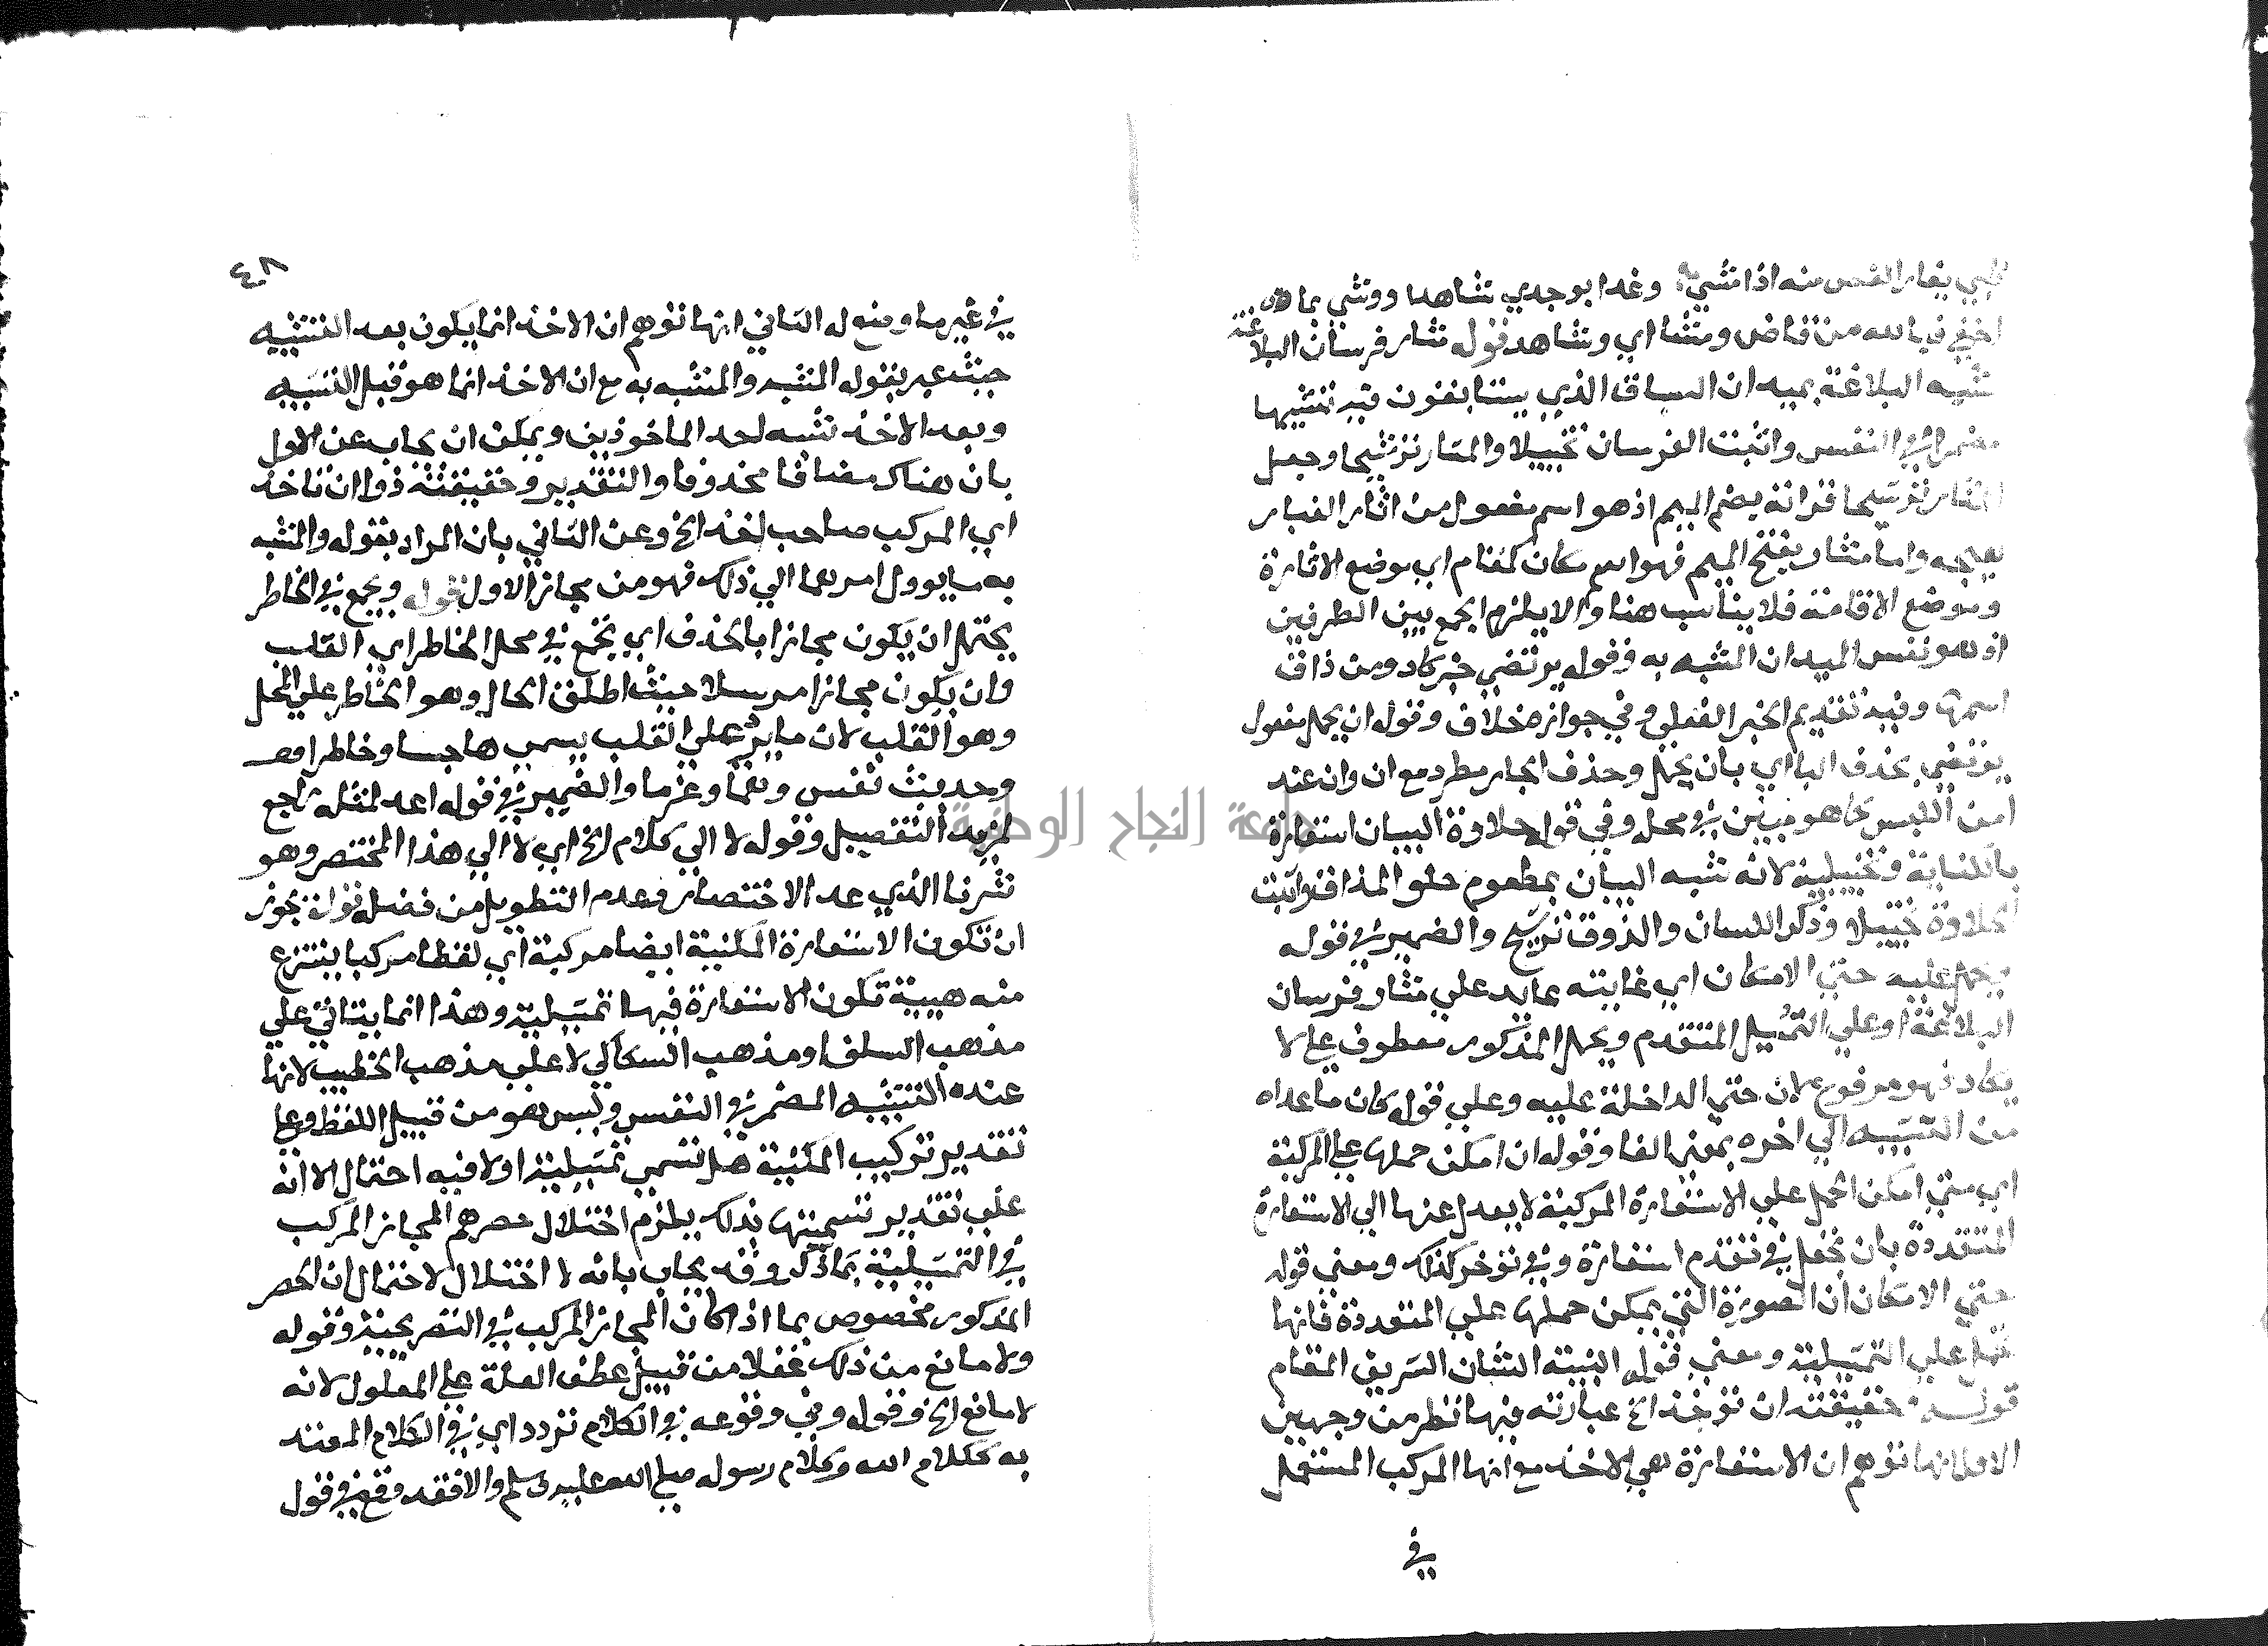 يغار الغصن منه اذا مشي وغدا بوجدي شاهدا ووشي بما
اخفي فيا لله من قاض وشا اي وشاهد قوله مثار فرسان البلاغة
شبه البلاغة بميدان السباق الذي يتسابقون فيه تشبيها
مضمرا في النفس واثبت الفرسان تخييلا والمثار ترشيحا وجعل
المثار ترشيحا قرانه بضم الميم اذ هو اسم مفعول من اثار الغبار
هيجه واما مثار بفتح الميم فهو اسم مكان كمقام اي موضع الاثارة
وموضع الاقامة فلا يناسب هنا والا يلزم الجمع بين الطرفين
اذ هو نفس الميدان المشبه به وقوله يرتضي خبر كاد ومن ذاق
اسمها وفيه تقديم الخبر الفعلي وفي جوازه خلاف وقوله ان يحمل مفعول
يرتضي بحذف الباء اي بان يحمل وحذف الجار مطرد مع ان وان عند
امن اللبس كما هو مبين في محله وفي قوله حلاوة البيان استعارة
بالكناية وتخييلية لانه شبه البيان بمطعوم حلو المذاق واثبت
الحلاوة تخييلا وذكر اللسان والذوق ترشيح والضمير في قوله
يحمل عليه حتي الامكان اي غايته عايد علي مثار فرسان
البلاغة او علي التمثيل المتقدم ويحمل المذكور معطوف علي لا
يكاد فهو مرفوع لان حتي الداخلة عليه وعلي قوله كان ما عداه
من التشبيه الي اخره بمعني الفا وقوله ان امكن حملها علي المركبة
اي متي امكن الحمل علي الاستعارة المركبة لا يعدل عنها الي الاستعارة
المتعددة بان تجعل في تقدم استعارة وفي تؤخر كذلك ومعني قوله
حتي الامكان ان الصورة التي يمكن حملها علي المتعددة فانها
تحمل علي التمثيلية ومعني قوله البيتة الشان الشريف المقام
قوله حقيقته ان تؤخذ الخ عبارته فيها نظر من وجهين
الاول انها توهم ان الاستعارة هي الاخذ مع انها المركب المستعمل
في
٤٨
في غير ما وضع له الثاني انها توهم ان الاخذ انما يكون بعد التشبيه
حيث عبر بقوله المشبه والمشبه به مع ان الاخذ انما هو قبل التشبيه
وبعد الاخذ تشبه احد الماخوذين ويمكن ان يجاب عن الاول
بان هناك مضافا محذوفا والتقدير وحقيقته ذو ان تاخذ
اي المركب صاحب اخذ الخ وعن الثاني بان المراد بقوله والمشبه
به ما يوول امرهما الي ذلك فهو من مجاز الاول قوله ويجمع في الخاطر
يحتمل ان يكون مجازا بالحذف اي تجمع في محل الخاطر اي القلب
وان يكون مجازا مرسلا حيث اطلق الحال وهو الخاطر علي المحل
وهو القلب لان ما يرد علي القلب يسمي هاجسا وخاطرا
وحديث نفس وهما وعزما والضمير في قوله اعد لمثله راجع
لمزيد التفصيل وقوله لا الي كلام الخ اي لا الي هذا المختصر وهو
نثرنا الذي عد الاختصار وعدم التطويل من فضله قوله يجوز
ان تكون الاستعارة المكنية ايضا مركبة اي لفظا مركبا ينتزع
منه هيية تكون الاستعارة فيها تمثيلية وهذا انما يتاتي علي
مذهب السلف او مذهب السكاكي لا علي مذهب الخطيب لانها
عنده التشبيه المضمر في النفس وليس هو من قبيل اللفظ وعلي
تقدير تركيب المكنية هل تسمي تمثيلية اولا فيه احتمال الا انه
علي تقدير تسميتها بذلك يلزم اختلال حصرهم المجاز المركب
في التمثيلية بما ذكر وقد يجاب بانه لا اختلال لاحتمال ان الحصر
المذكور مخصوص بما اذا كان المجاز المركب في التصريحية وقوله
ولا مانع من ذلك عقلا من قبيل عطف العلة علي المعلول لانه
لا مانع الخ وقوله وفي وقوعه في الكلام تردد اي في الكلام المعتد
به ككلام الله وكلام رسوله صلي الله عليه وسلم والا فقد وقع في قول
جامعة النجاح الوطنية